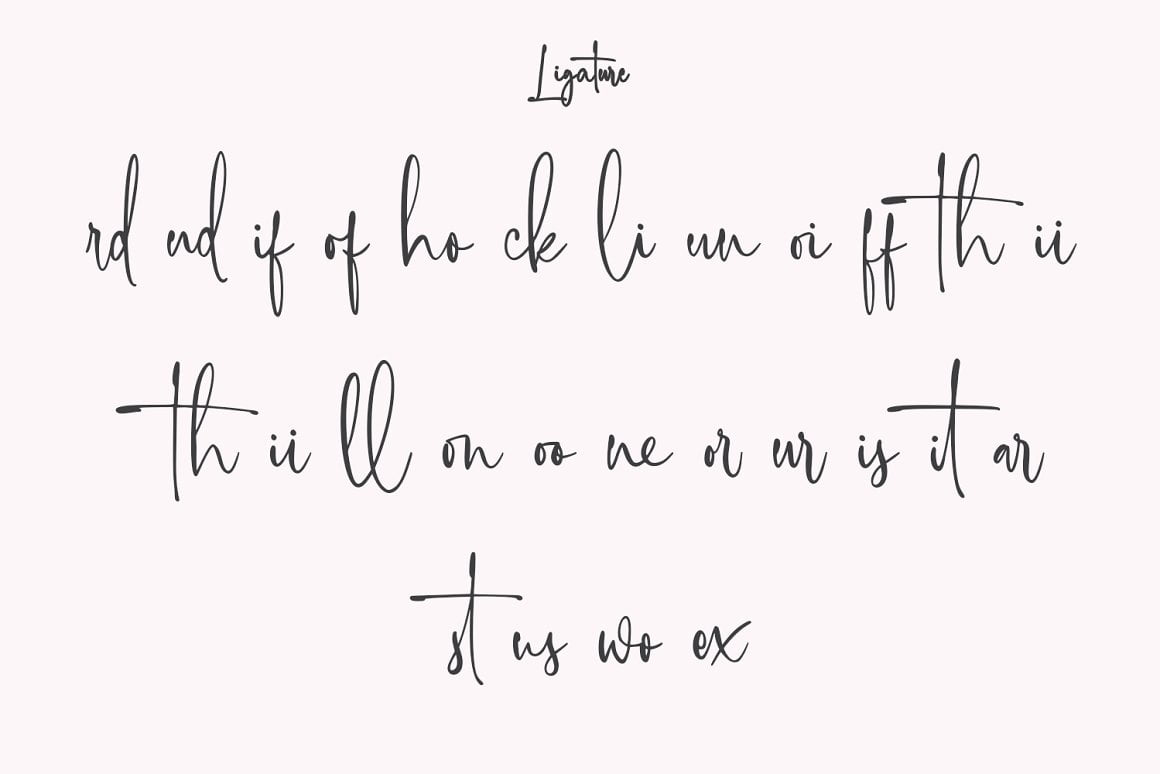 Ligature
rd ud if of ho ck li un oi ff th ii
th ii ll on oo ne or ur is it ar
st us wo ex